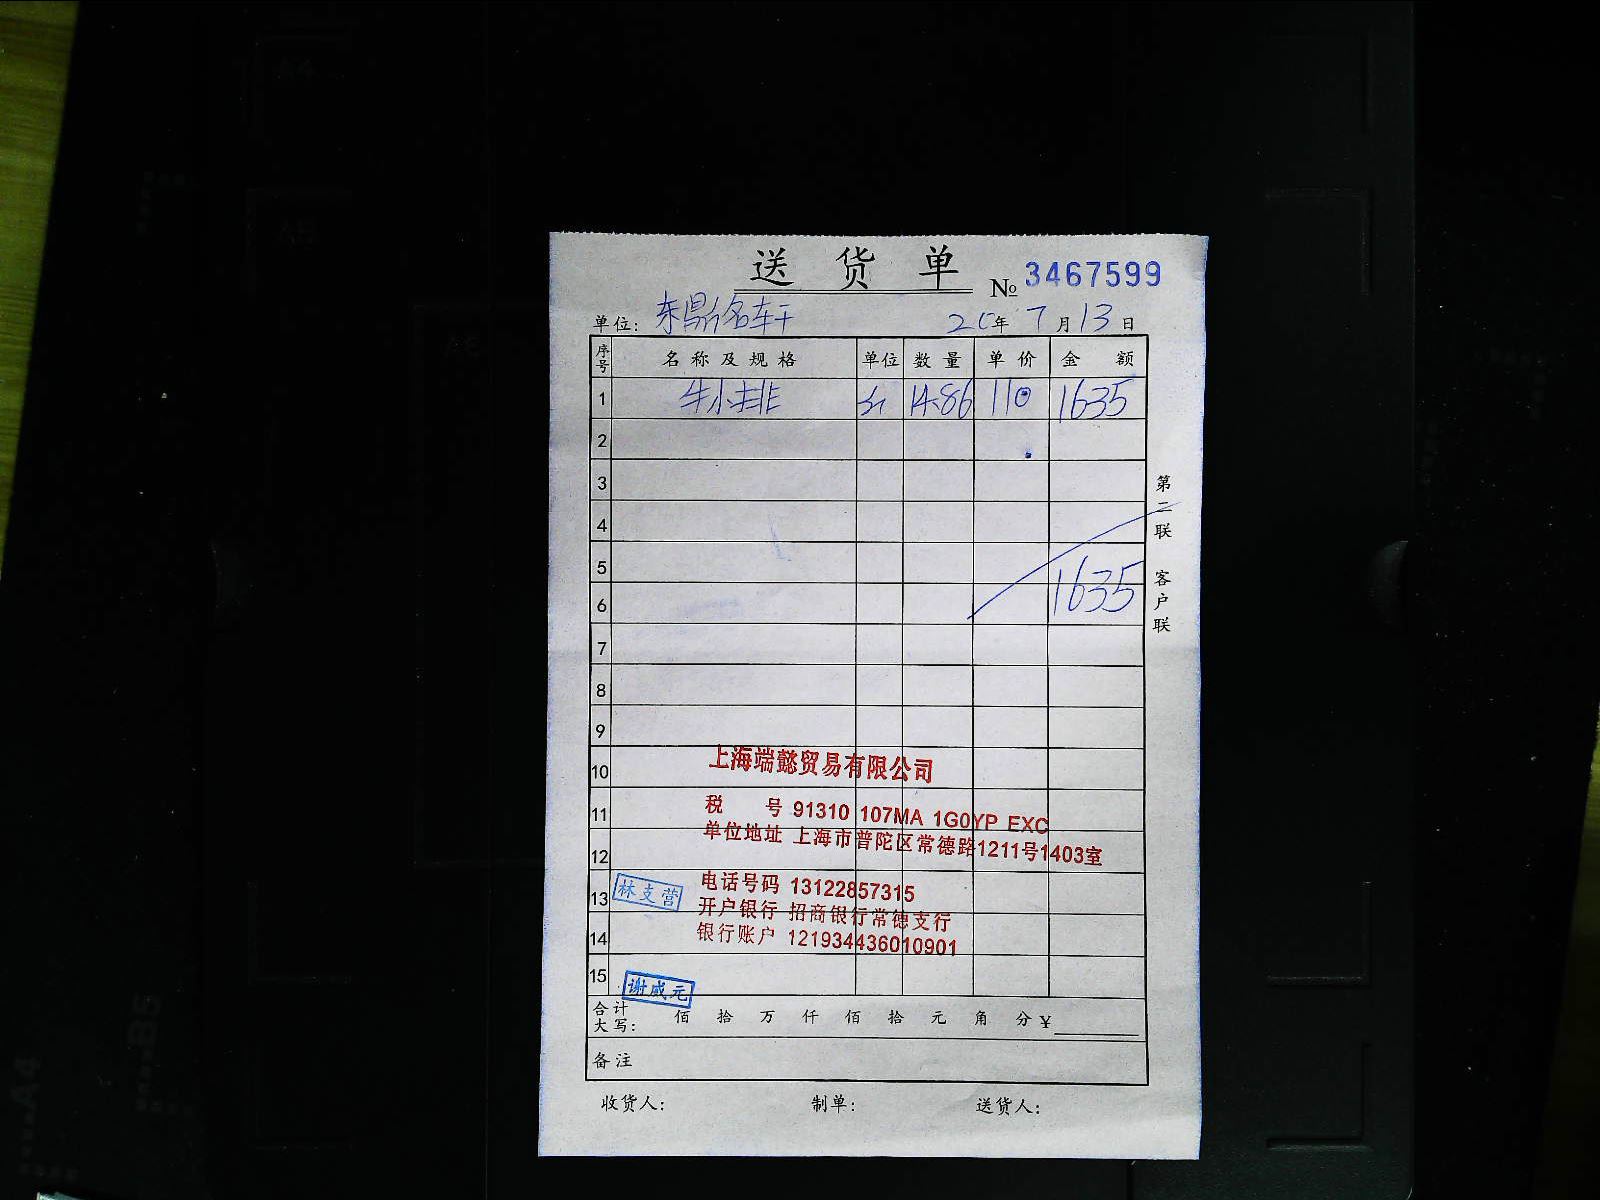 送货单
№ 3467599
单位: 东鼎名轩 20年 7月13日
序号 名称及规格 单位 数量 单价 金额
1 牛小排 斤 14.86 110 1635
2
3
4
5
6 1635
7
8
9
10
11
12
13
14
15
第二联 客户联
上海端懿贸易有限公司
税 号 91310 107MA 1G0YP EXC
单位地址 上海市普陀区常德路1211号1403室
电话号码 13122857315
开户银行 招商银行常德支行
银行账户 121934436010901
林支营
谢咸元
合计大写: 佰 拾 万 仟 佰 拾 元 角 分 ¥
备注
收货人: 制单: 送货人:
A4
A5
A6
B5
A4